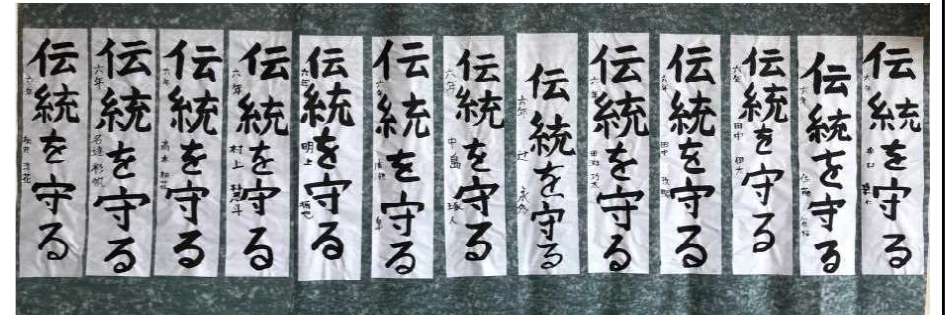 伝統を守る
六年
伝統を守る
六年
伝統を守る
六年 田中
伝統を守る
六年 田中
伝統を守る
六年
伝統を守る
六年 辻
伝統を守る
六年 中島 琢人
伝統を守る
六年
伝統を守る
六年 明上 拓也
伝統を守る
六年 村上
伝統を守る
六年 高木
伝統を守る
六年
伝統を守る
六年